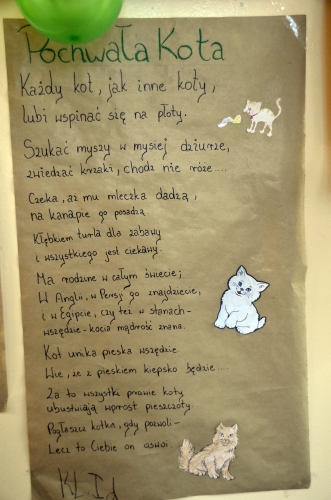 Pochwała Kota
Każdy kot, jak inne koty,
lubi wspinać się na płoty.
Szukać myszy w mysiej dziurze,
zwiedzać krzaki, chodź nie róże....
Czeka, aż mu mleczka dadzą,
na kanapie go posadzą
Kłębkiem turla dla zabawy
i wszystkiego jest ciekawy.
Ma rodzinę w całym świecie;
W Anglii, w Persji go znajdziecie,
i w Egipcie, czy też w stanach-
wszędzie-kocia mądrość znana.
Kot unika pieska wszędzie
Wie, że z pieskiem kiepsko będzie....
Za to wszystki prawie koty
ubóstwiają wprost pieszczoty.
Pogłaszcz kotka, gdy pozwoli-
Lecz to Ciebie on oswoi.
Kl. I d